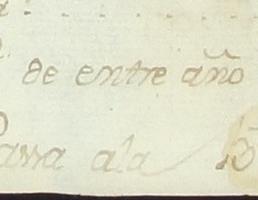 de entre año
arra ala